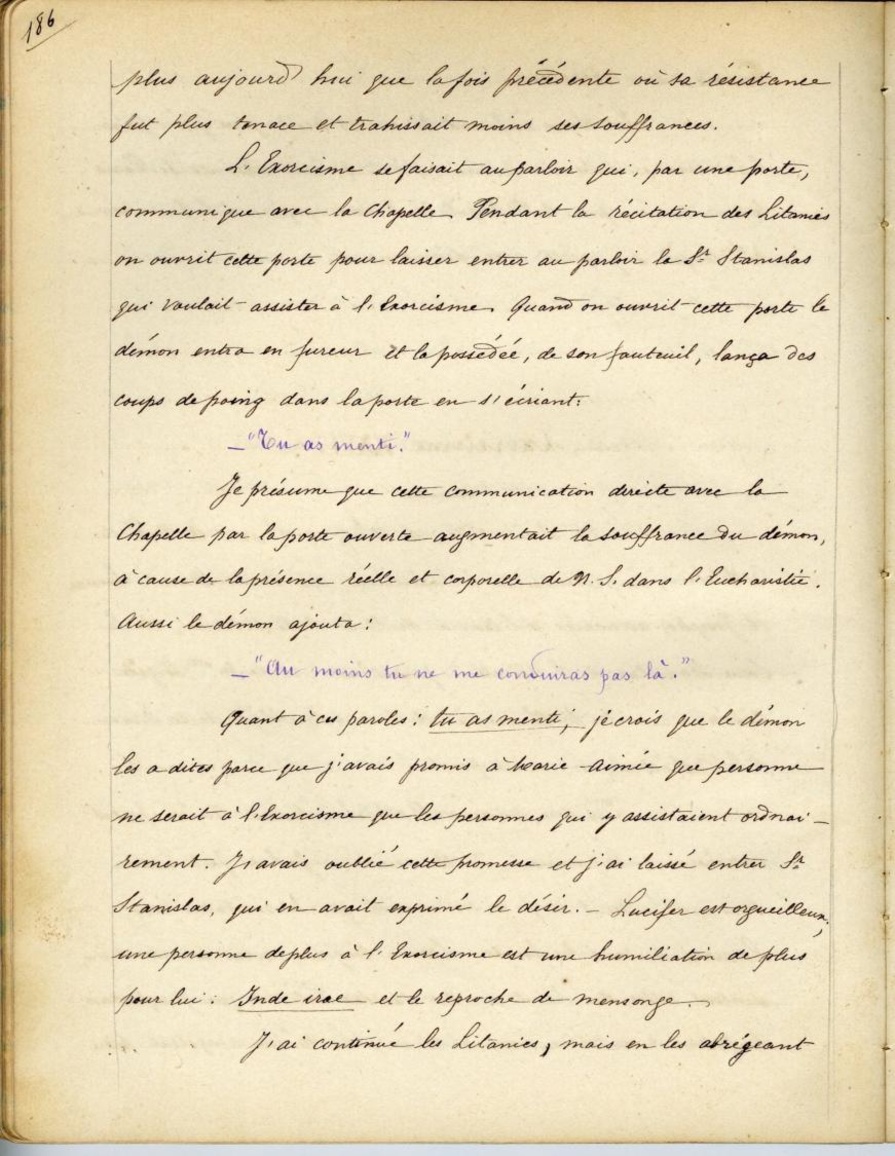 186
plus aujourd'hui que la fois précédente où sa résistance
fut plus tenace et trahissait moins ses souffrances.
L'Exorcisme se faisait au parloir qui, par une porte,
communique avec la Chapelle. Pendant la récitation des Litanies
on ouvrit cette porte pour laisser entrer au parloir la Sr Stanislas
qui voulait assister à l'Exorcisme. Quand on ouvrit cette porte le
démon entra en fureur et la possédée, de son fauteuil, lança des
coups de poing dans la porte en s'écriant:
—"Tu as menti."
Je présume que cette communication directe avec la
Chapelle par la porte ouverte augmentait la souffrance du démon,
à cause de la présence réelle et corporelle de N. S. dans l'Eucharistie.
Aussi le démon ajouta:
—"Au moins tu ne me conduiras pas là."
Quant à ces paroles: tu as menti, je crois que le démon
les a dites parce que j'avais promis à Marie-Aimée que personne
ne serait à l'Exorcisme que les personnes qui y assistaient ordinai-
rement. J'avais oublié cette promesse et j'ai laissé entrer Sr
Stanislas, qui en avait exprimé le désir. - Lucifer est orgueilleux;
une personne de plus à l'Exorcisme est une humiliation de plus
pour lui: Inde irae et le reproche de mensonge.
J'ai continué les Litanies, mais en les abrégeant